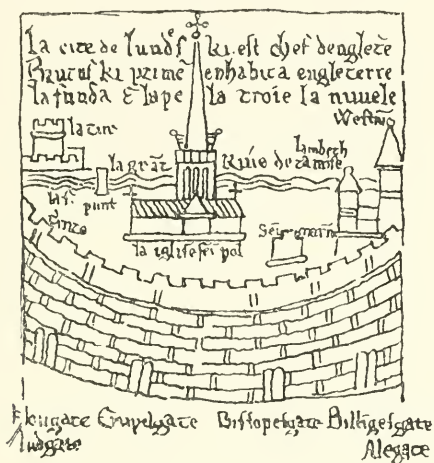 La cite de lund's ki est chef denglet'e
Brutus ki prim' enhabita engleterre
la funda & lape la troie la nuvele
Westm'
la tur
lambeth
la gra't Rivie de tamise
punt
la iglise sci pol
Neugate Crupelgate Bissopesgate Billigesgate
Ludgate
Alegate